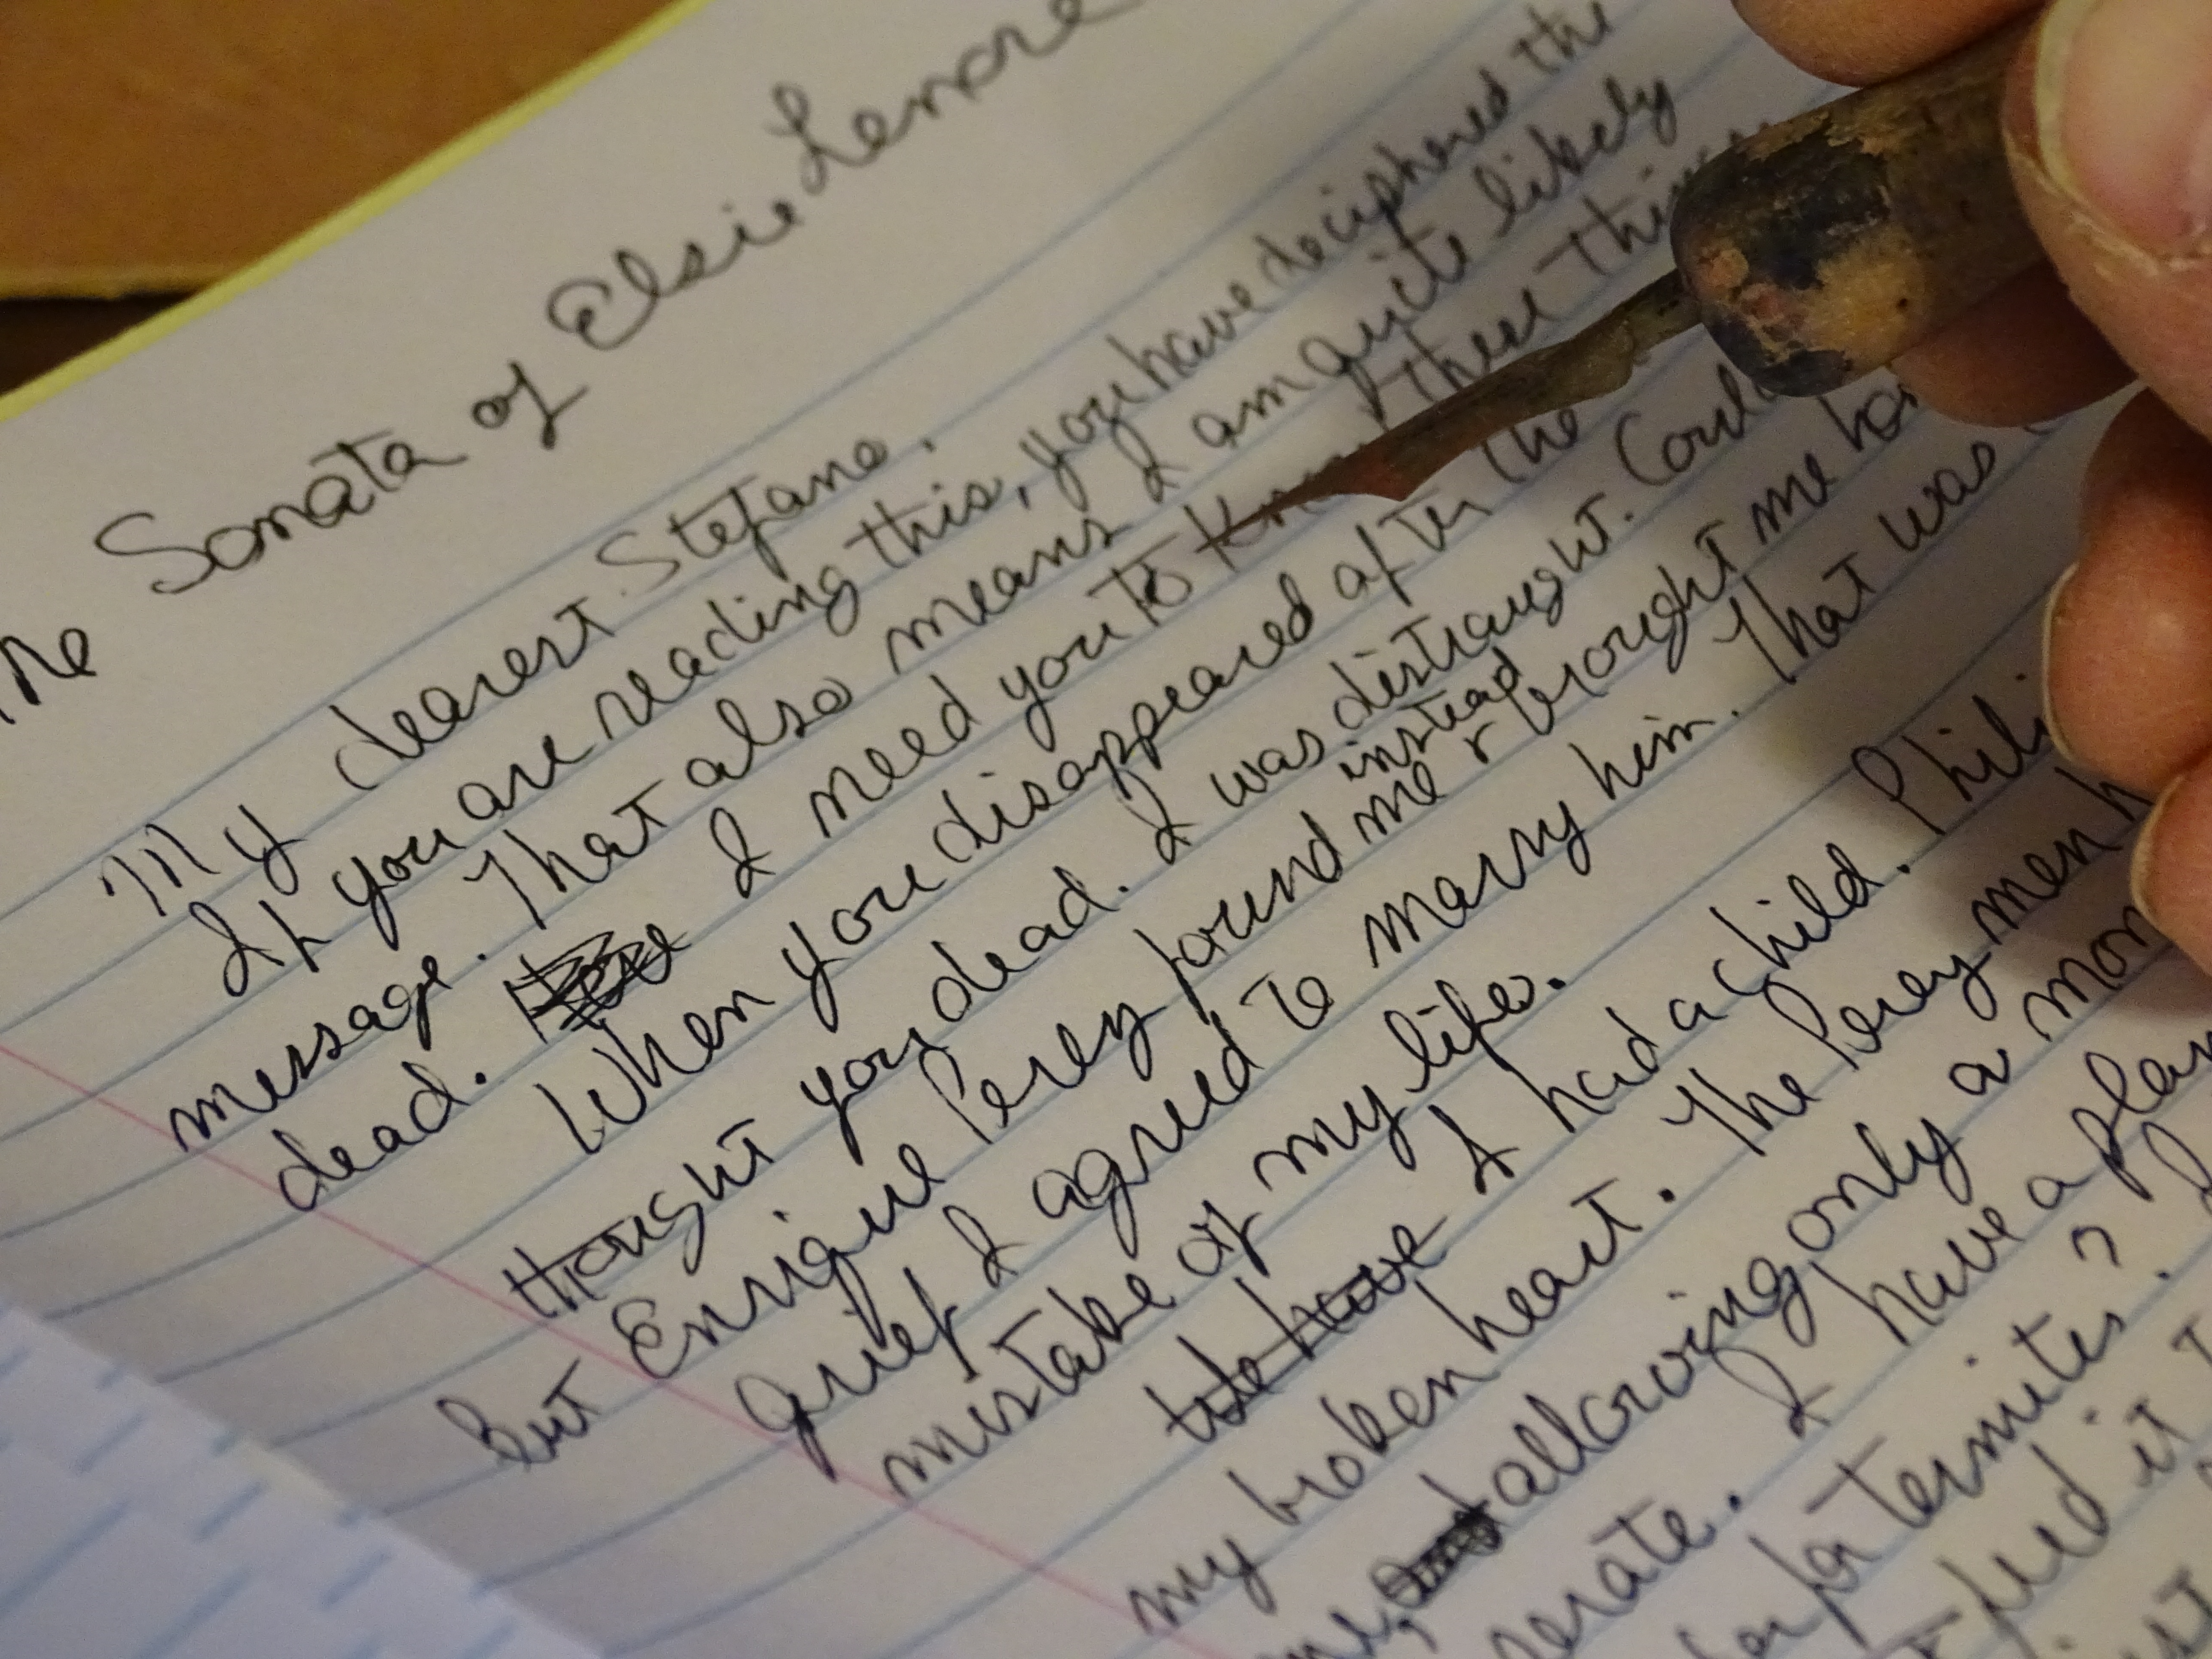 The Sonata of Elsie Lenore
My dearest Stefano.
If you are reading this, you have deciphered the
message. That also means I am quite likely
dead. I need you to these
When you disappeared after the
thought you dead. I was distraught.
instead
but Enrique Perez found me & brought me
grief I agreed to marry him. That was
mistake of my life.
We have I had a child.
my broken heart. The Perez men
allowing only a
I have a
for termites?
it